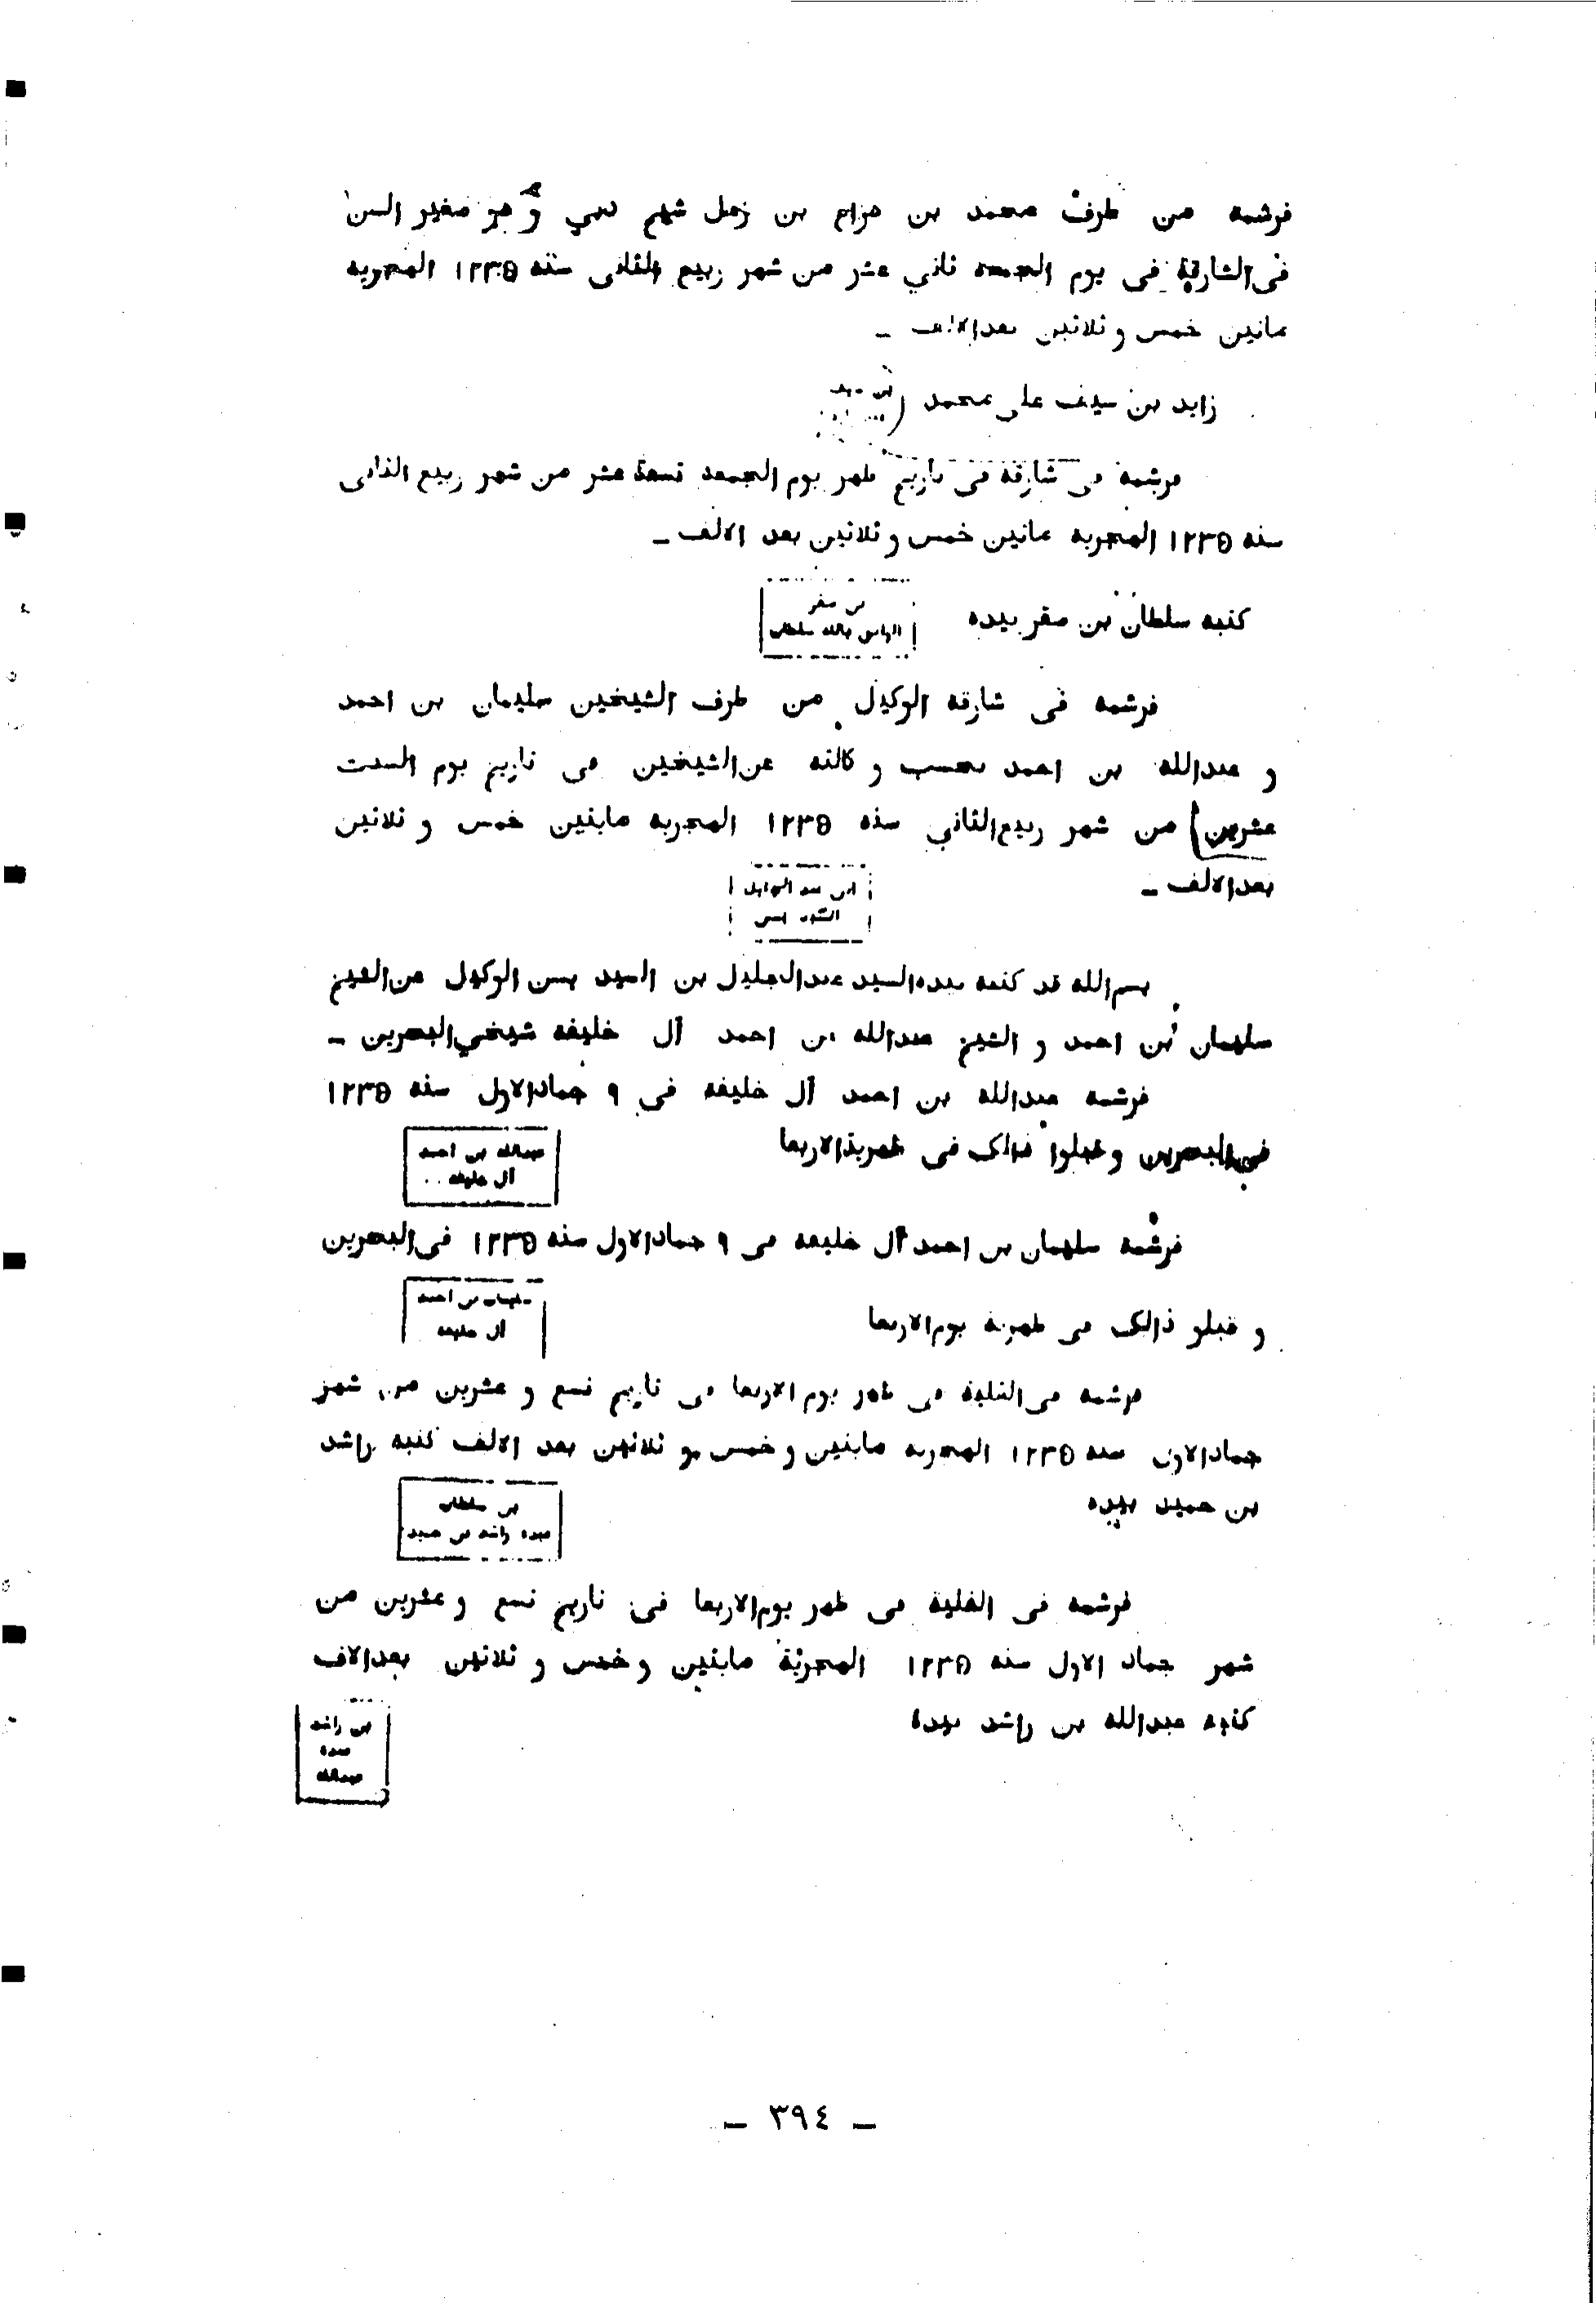 فرشمه من طرف محمد بن هزاع بن زعل شيخ دبي و هو صغير السن
فى الشارقة فى يوم الجمعه ثاني عشر من شهر ربيع الثانى سنه ۱۲۳۵ الهجريه
ماتين خمس و ثلاثين بعدالالف –
زايد بن سيف على محمد
فرشمه فى شارقة فى تاريخ ظهر يوم الجمعه تسعة عشر من شهر ربيع الثانى
سنه ۱۲۳۵ الهجريه ماتين خمس و ثلاثين بعد الالف –
كتبه سلطان بن صقر بيده
بن صقر
الواثق بالله سلطان
فرشمه فى شارقه الوكيل من طرف الشيخين سليمان بن احمد
و عبدالله بن احمد بحسب و كالته عن‌الشيخين فى تاريخ يوم السبت
عشرين) من شهر ربيع‌الثاني سنه ۱۲۳۵ الهجريه مابتين خمس و ثلاثين
بعدالالف –
بسم‌الله قد كتبه بيده‌السيد عبدالجليل بن السيد يسن الوكيل عن‌الشيخ
سليمان بن احمد و الشيخ عبدالله بن احمد آل خليفه شيخي‌البحرين –
فرشمه عبدالله بن احمد آل خليفه فى ۹ جمادالاول سنه ۱۲۳۵
فى‌البحرين و قبلوا ذالك فى ظهرية‌الاربعا
عبدالله بن احمد
آل خليفه
فرشمه سليمان بن احمد آل خليفه فى ۹ جمادالاول سنه ۱۲۳۵ فى‌البحرين
و قبلو ذالك فى ظهرية يوم‌الاربعا
سليمان بن احمد
آل خليفه
فرشمه فى‌الفلية فى ظهر يوم‌الاربعا فى تاريخ تسع و عشرين من شهر
جمادالاول سنه ۱۲۳۵ الهجريه مابتين و خمس و ثلاثين بعد الالف كتبه راشد
بن حميد بيده
بن سلطان
عبده راشد بن حميد
فرشمه فى الفلية فى ظهر يوم‌الاربعا فى تاريخ تسع و عشرين من
شهر جماد الاول سنه ۱۲۳۵ الهجرية مابتين و خمس و ثلاثين بعدالاف
كتبه عبدالله بن راشد بيده
بن راشد
عبده
عبدالله
– ٣٩٤ –